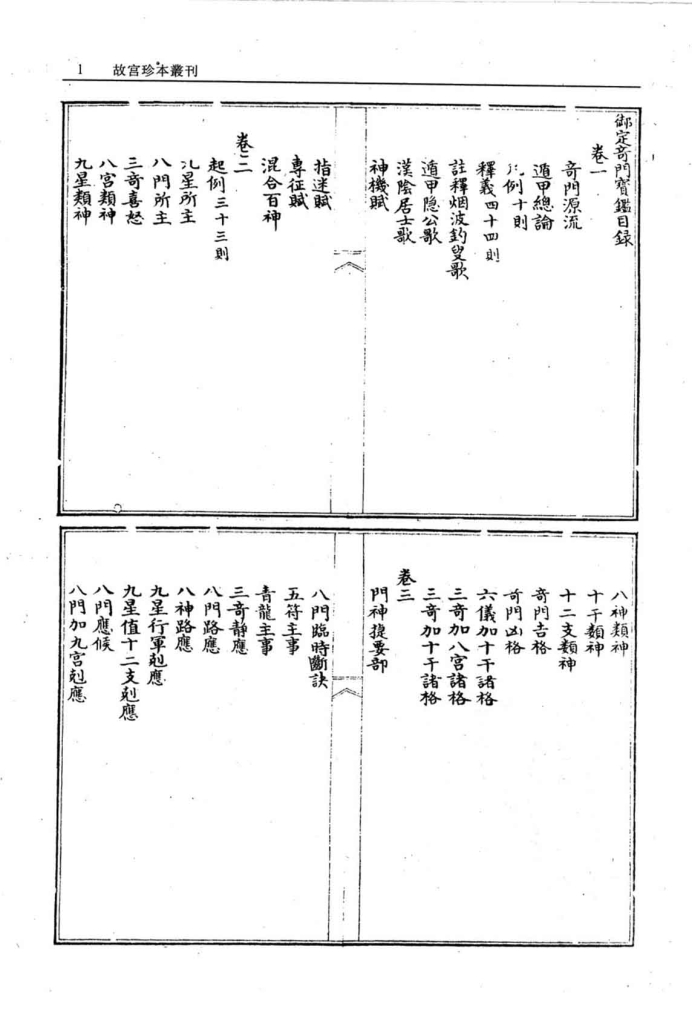 1 故宮珍本叢刊
御定奇門寶鑑目録
卷一
奇門源流
遁甲總論
凡例十則
釋義四十四則
註釋烟波釣叟歌
遁甲隐公歌
漢陰居士歌
神機賦
指迷賦
專征賦
混合百神
卷二
起例三十三則
九星所主
八門所主
三奇喜怒
八宮類神
九星類神
八神類神
十干類神
十二支類神
奇門吉格
奇門凶格
六儀加十干諸格
三奇加八宮諸格
三奇加十干諸格
卷三
門神捷要部
八門臨時斷訣
五符主事
青龍主事
三奇靜應
八門路應
八神路應
九星行軍剋應
九星值十二支剋應
八門應候
八門加九宮剋應